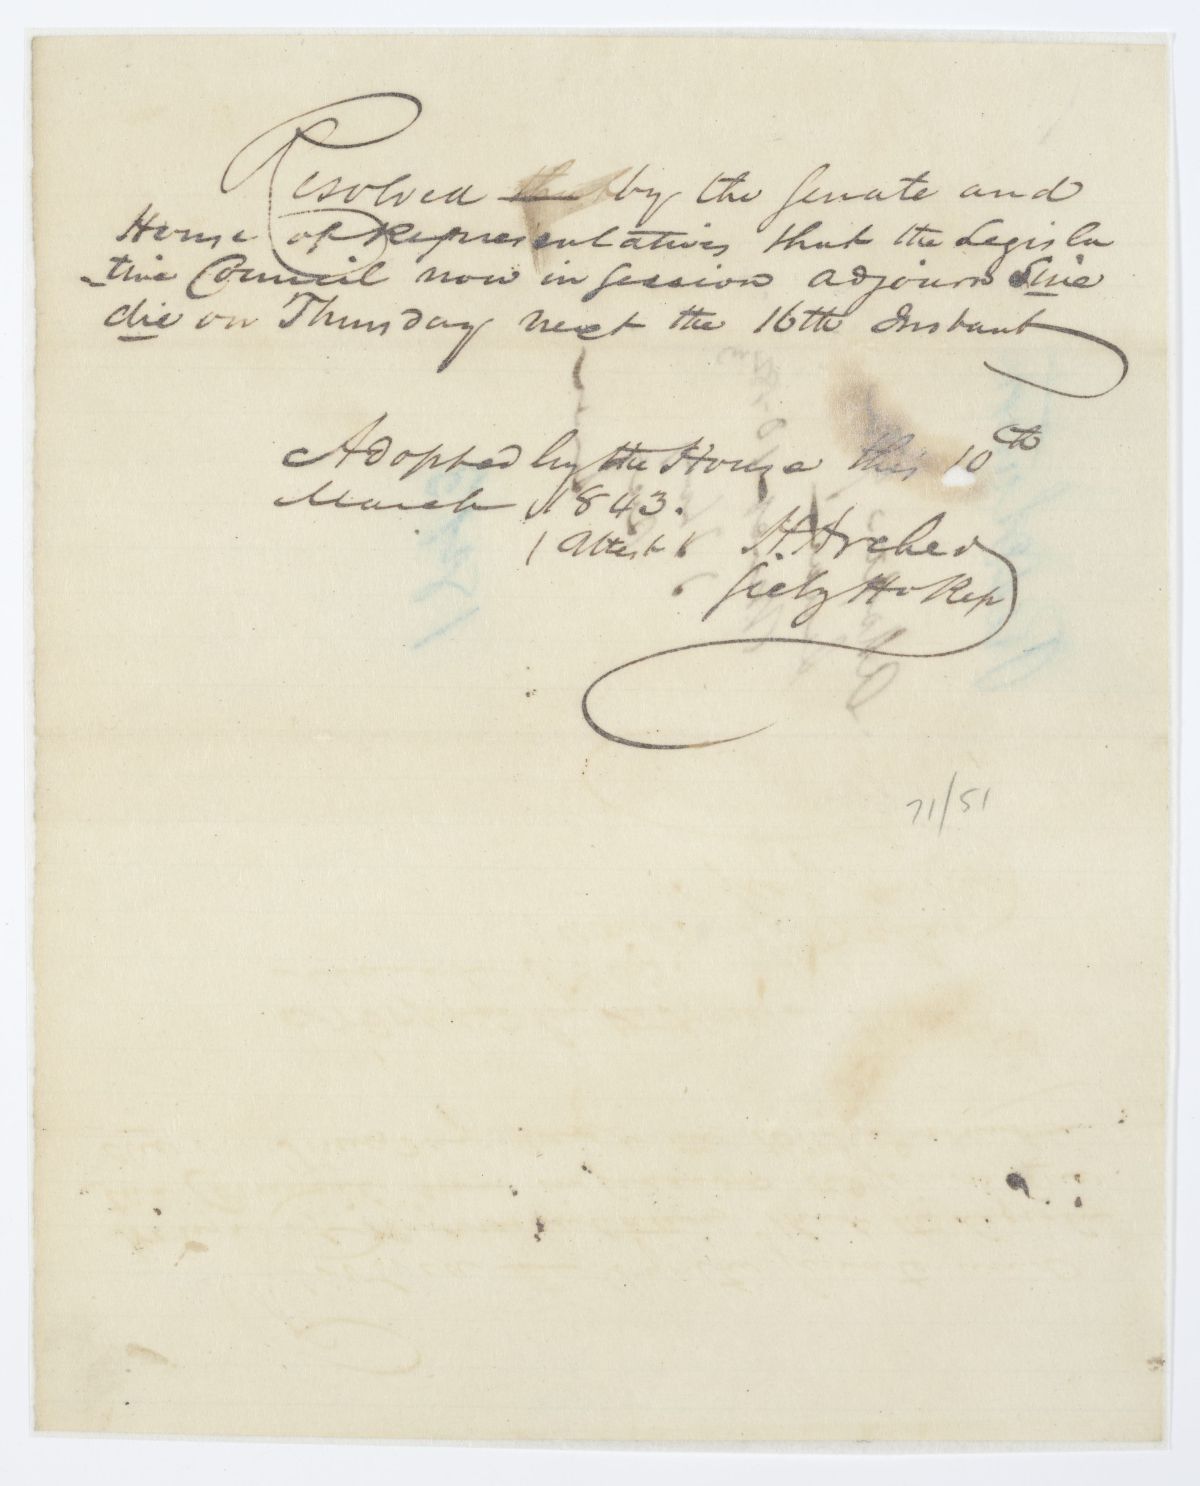 Resolved that by the Senate and
House of Representatives that the Legisla
-tive Council now in session adjourn Sine
die on Thursday next the 16th Instant
Adopted by the House this 10th
March 1843.
(Attest) H. Archer
Secty Ho Rep
71/51